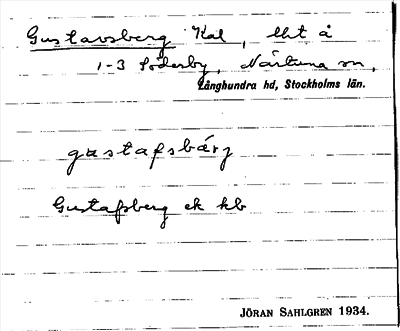 Gustavsberg Kal, lht å
1-3 Söderby, Närtuna sn,
Långhundra hd, Stockholms län.
gustafsbárj
Gustafsberg ek kb
JÖRAN SAHLGREN 1934.